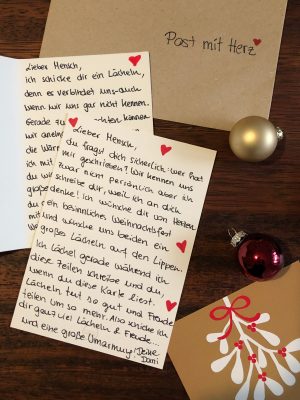 Post mit Herz
Lieber Mensch,
ich schicke dir ein Lächeln,
denn es verbindet uns auch
wenn wir uns gar nicht kennen.
Gerade zu
Lieber Mensch,
du fragst dich sicherlich: wer hat
mir geschrieben? Wir kennen uns
zwar nicht persönlich aber ich
schreibe dir, weil ich an dich
denke! Ich wünsche dir von Herzen
ein besinnliches Weihnachtsfest
und wünsche uns beiden ein
großes Lächeln auf den Lippen.
Ich lächel gerade während ich
diese Zeilen schreibe und du,
wenn du diese Karte liest.
Lächeln tut so gut und Freude
teilen um so mehr. Also schicke ich
dir ganz viel Lächeln & Freude...
und eine große Umarmung! Deine
Dami